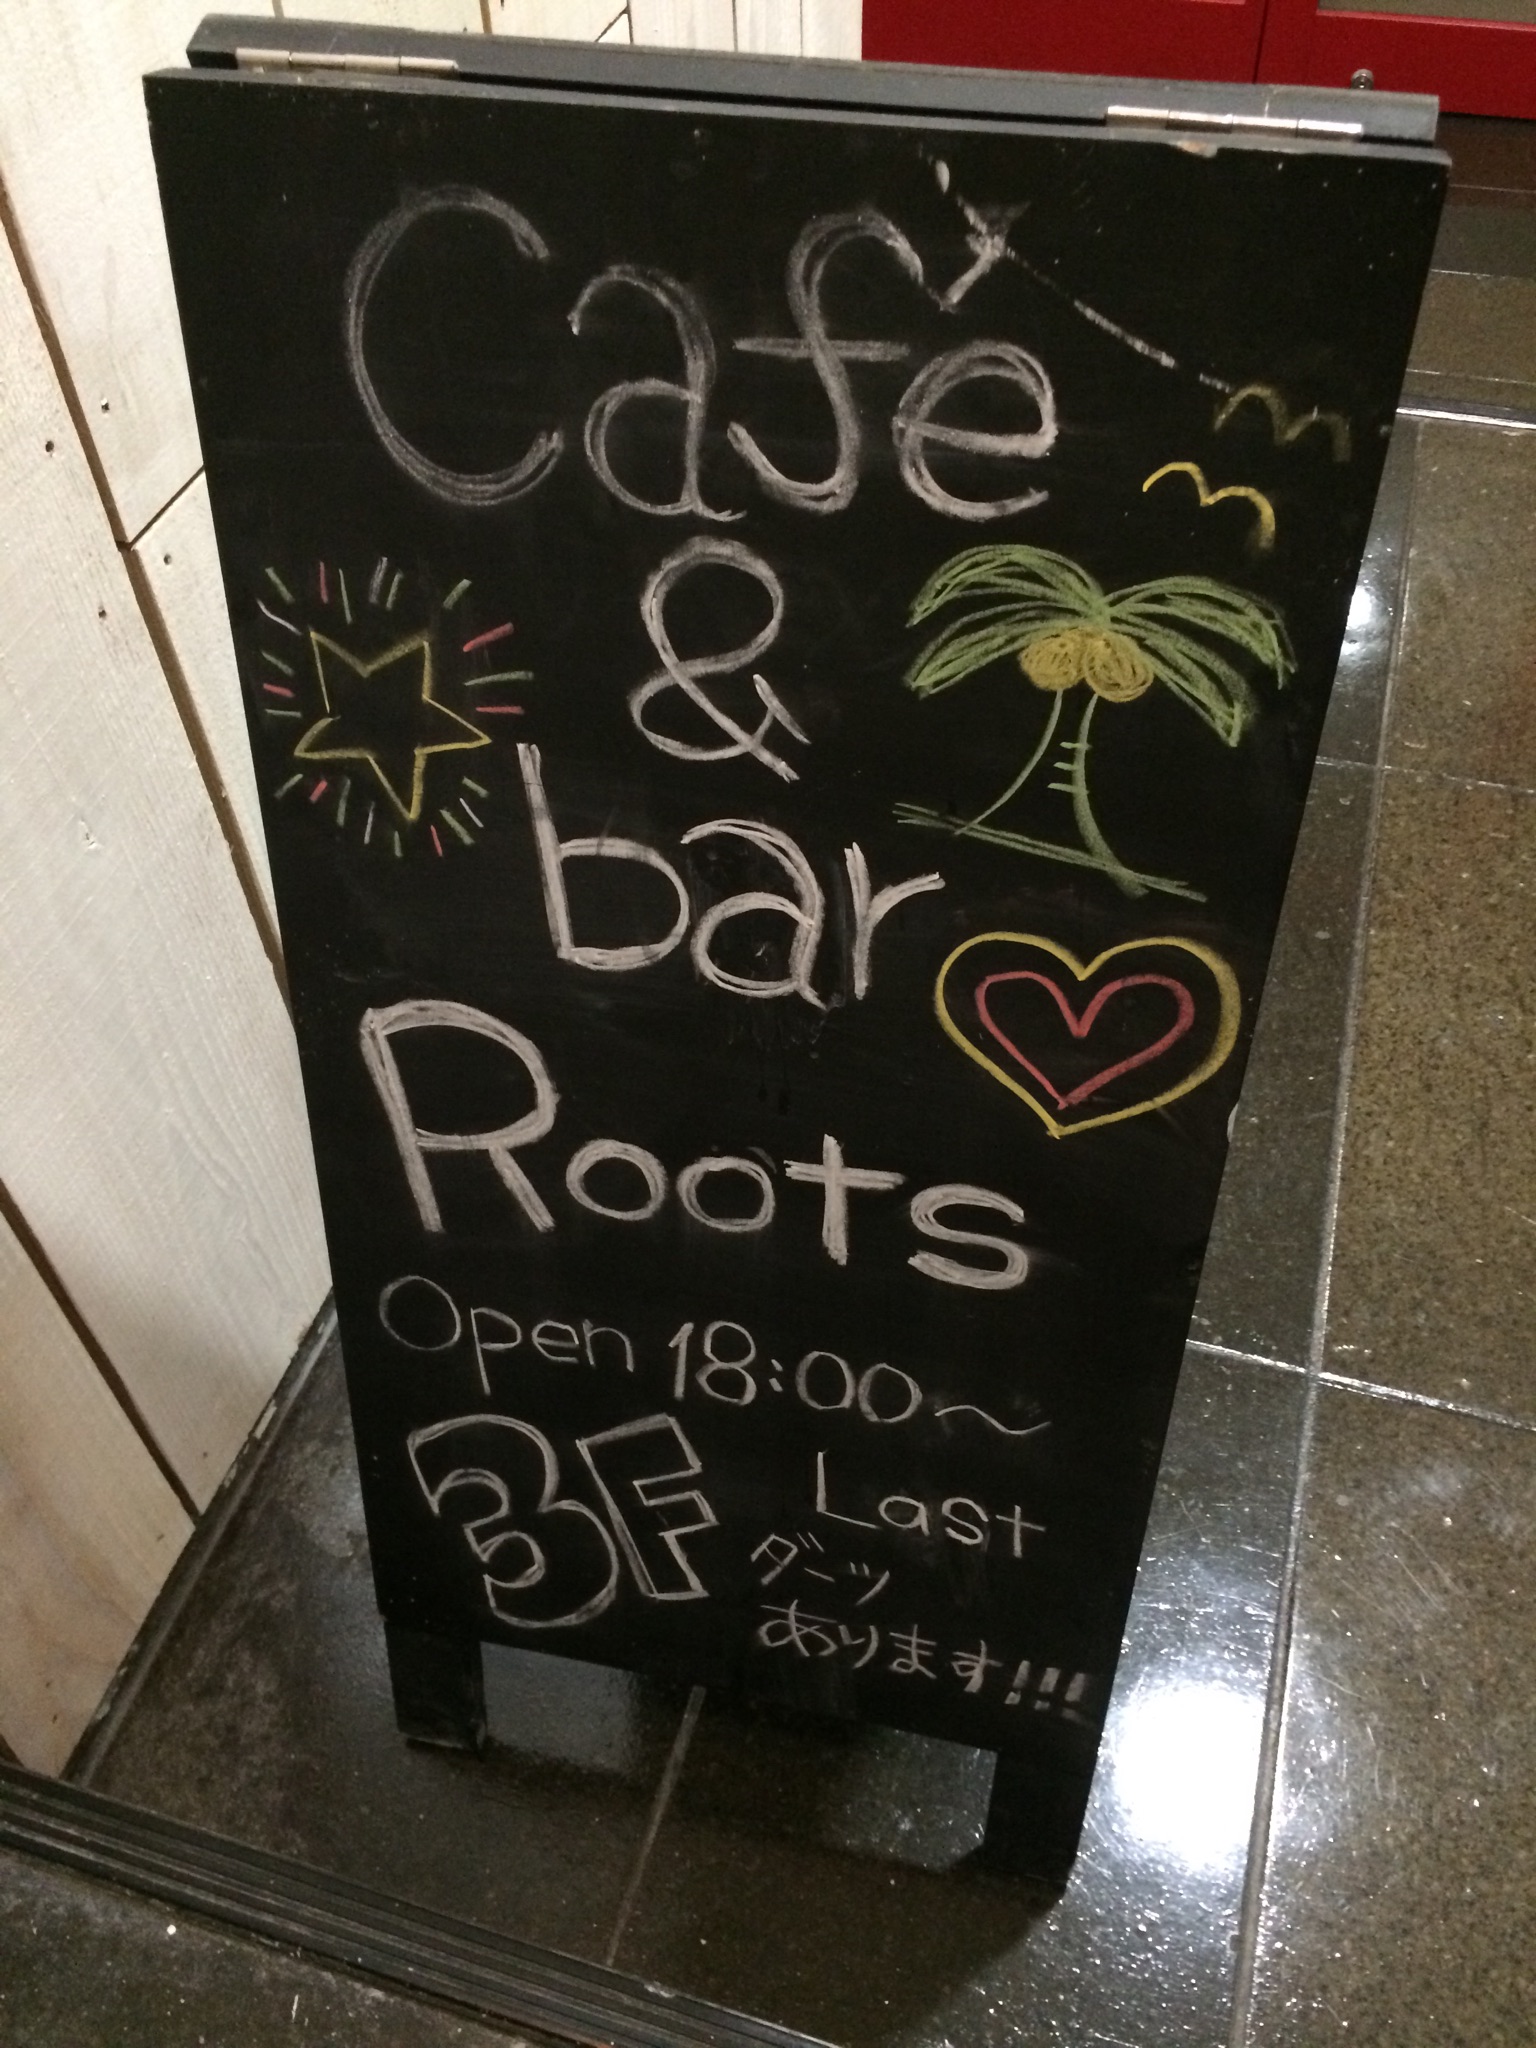 Café
&
bar
Roots
Open 18:00～
Last
3F
ダーツ
あります!!!